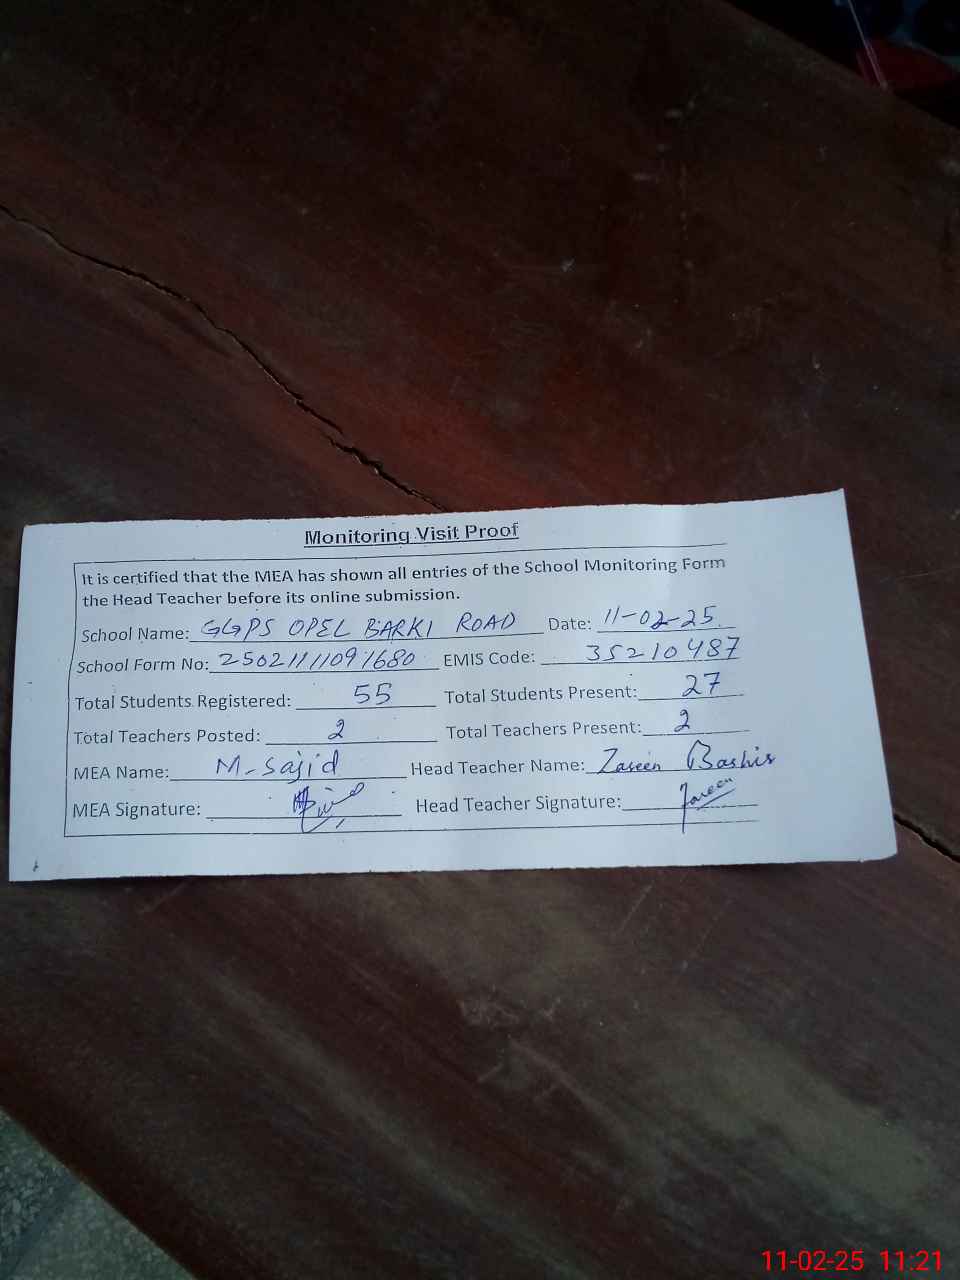 Monitoring Visit Proof
It is certified that the MEA has shown all entries of the School Monitoring Form
the Head Teacher before its online submission.
School Name: GGPS OPEL BARKI ROAD Date: 11-02-25
School Form No: 25021111091680 EMIS Code: 35210487
Total Students Registered: 55 Total Students Present: 27
Total Teachers Posted: 2 Total Teachers Present: 2
MEA Name: M-Sajid Head Teacher Name: Zareen Bashir
MEA Signature: Head Teacher Signature: Zareen
11-02-25 11:21